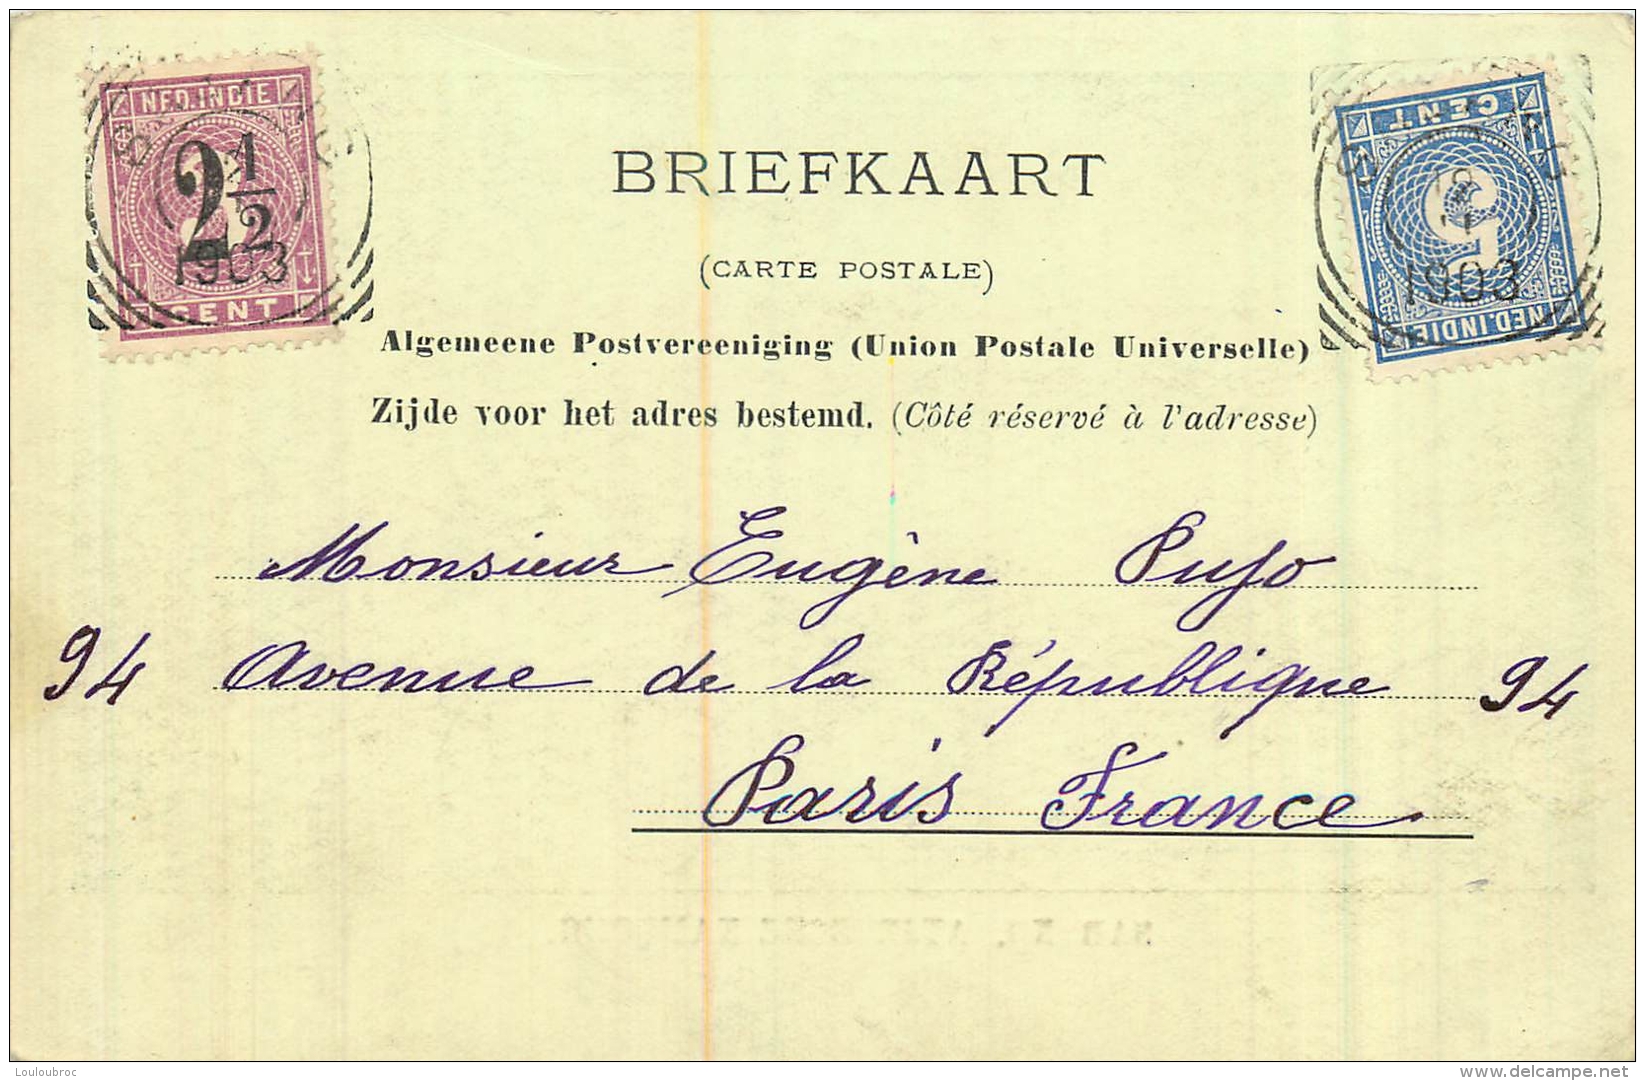 NED.INDIE
2 1/2
CENT
1903
CENT
5
NED.INDIE
1903
BRIEFKAART
(CARTE POSTALE)
Algemeene Postvereeniging (Union Postale Universelle)
Zijde voor het adres bestemd. (Côté réservé à l'adresse)
Monsieur Eugène Pujo
94 Avenue de la République 94
Paris France
Louloubroc
www.delcampe.net